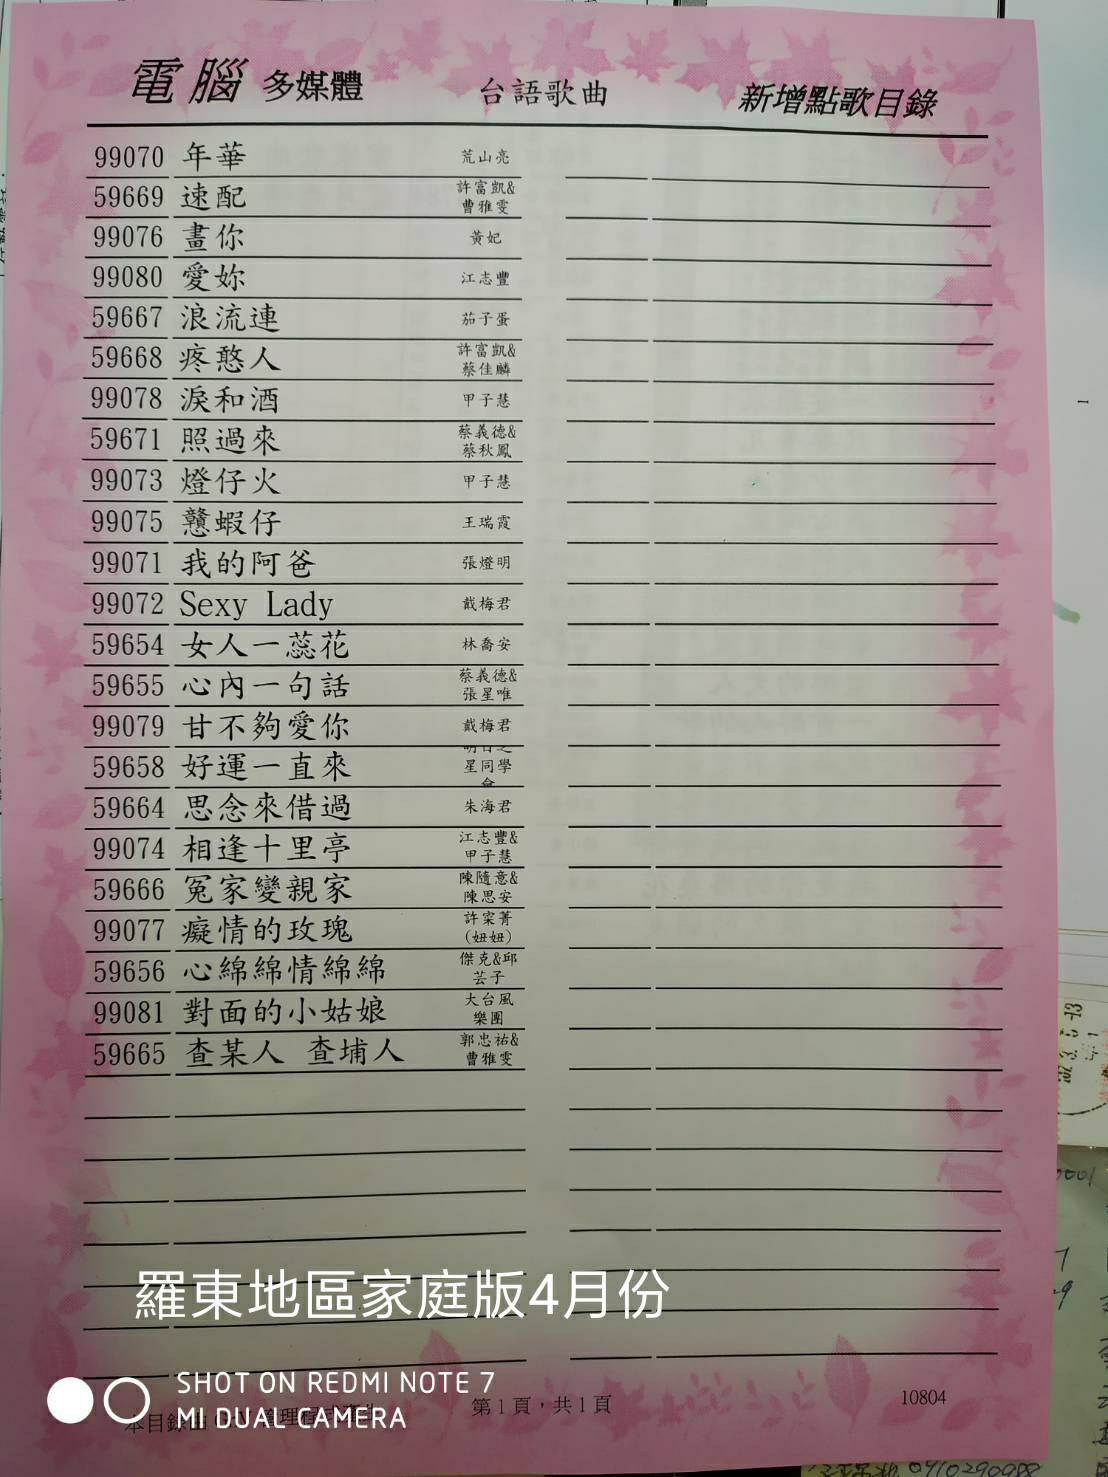 電腦 多媒體 台語歌曲 新增點歌目錄
99070 年華 荒山亮
59669 速配 許富凱&
曹雅雯
99076 畫你 黃妃
99080 愛妳 江志豐
59667 浪流連 茄子蛋
59668 疼憨人 許富凱&
蔡佳麟
99078 淚和酒 甲子慧
59671 照過來 蔡義德&
蔡秋鳳
99073 燈仔火 甲子慧
99075 戇蝦仔 王瑞霞
99071 我的阿爸 張燈明
99072 Sexy Lady 戴梅君
59654 女人一蕊花 林喬安
59655 心內一句話 蔡義德&
張星唯
99079 甘不夠愛你 戴梅君
59658 好運一直來 明日之
星同學
會
59664 思念來借過 朱海君
99074 相逢十里亭 江志豐&
甲子慧
59666 冤家變親家 陳隨意&
陳思安
99077 癡情的玫瑰 許寀菁
(妞妞)
59656 心綿綿情綿綿 傑克&邱
芸子
99081 對面的小姑娘 大台風
樂團
59665 查某人 查埔人 郭忠祐&
曹雅雯
羅東地區家庭版4月份
SHOT ON REDMI NOTE 7
MI DUAL CAMERA
本目錄由
第1頁，共1頁
10804